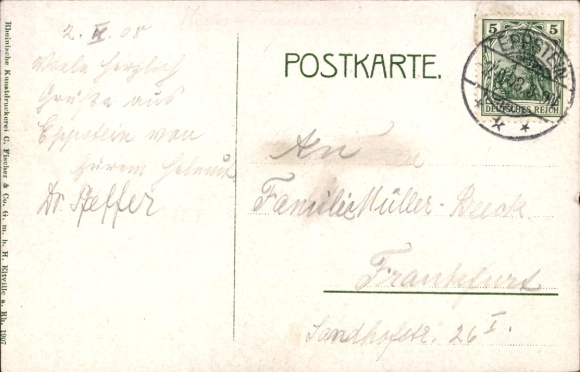 Rheinische Kunstdruckerei C. Fischer & Co. G. m. b. H. Eltville a. Rh. 1907
2. IX 08
Viele herzlich
Grüße aus
Eppstein von
Eurem Helmut
Dr Pfeffer
POSTKARTE.
5 5
EPPSTEIN
DEUTSCHES REICH
An
Familie Müller-
Frankfurt
Sandhofstr. 26 I.